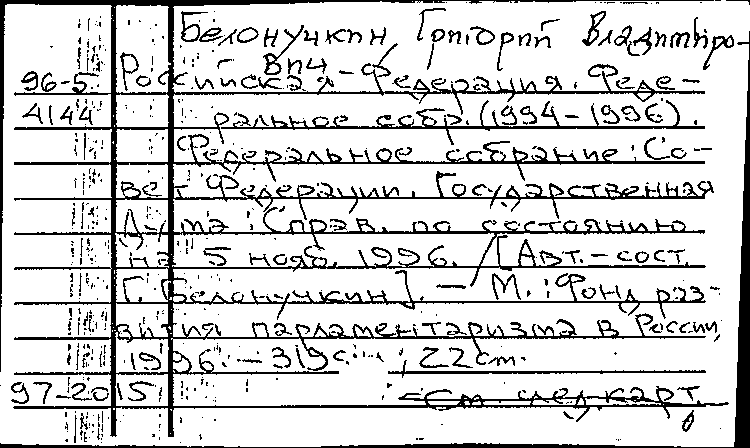 Белонучкин, Григорий Владимиро-
вич
96-5 Российская Федерация. Феде-
4144 ральное собр. (1994-1996).
Федеральное собрание: Со-
вет Федерации. Государственная
Дума: Справ. по состоянию
на 5 нояб. 1996. / [Авт.-сост.
Г. Белонучкин]. - М.: Фонд раз-
вития парламентаризма в России,
1996. - 319с.; 22см.
97-2015 См. след. карт.